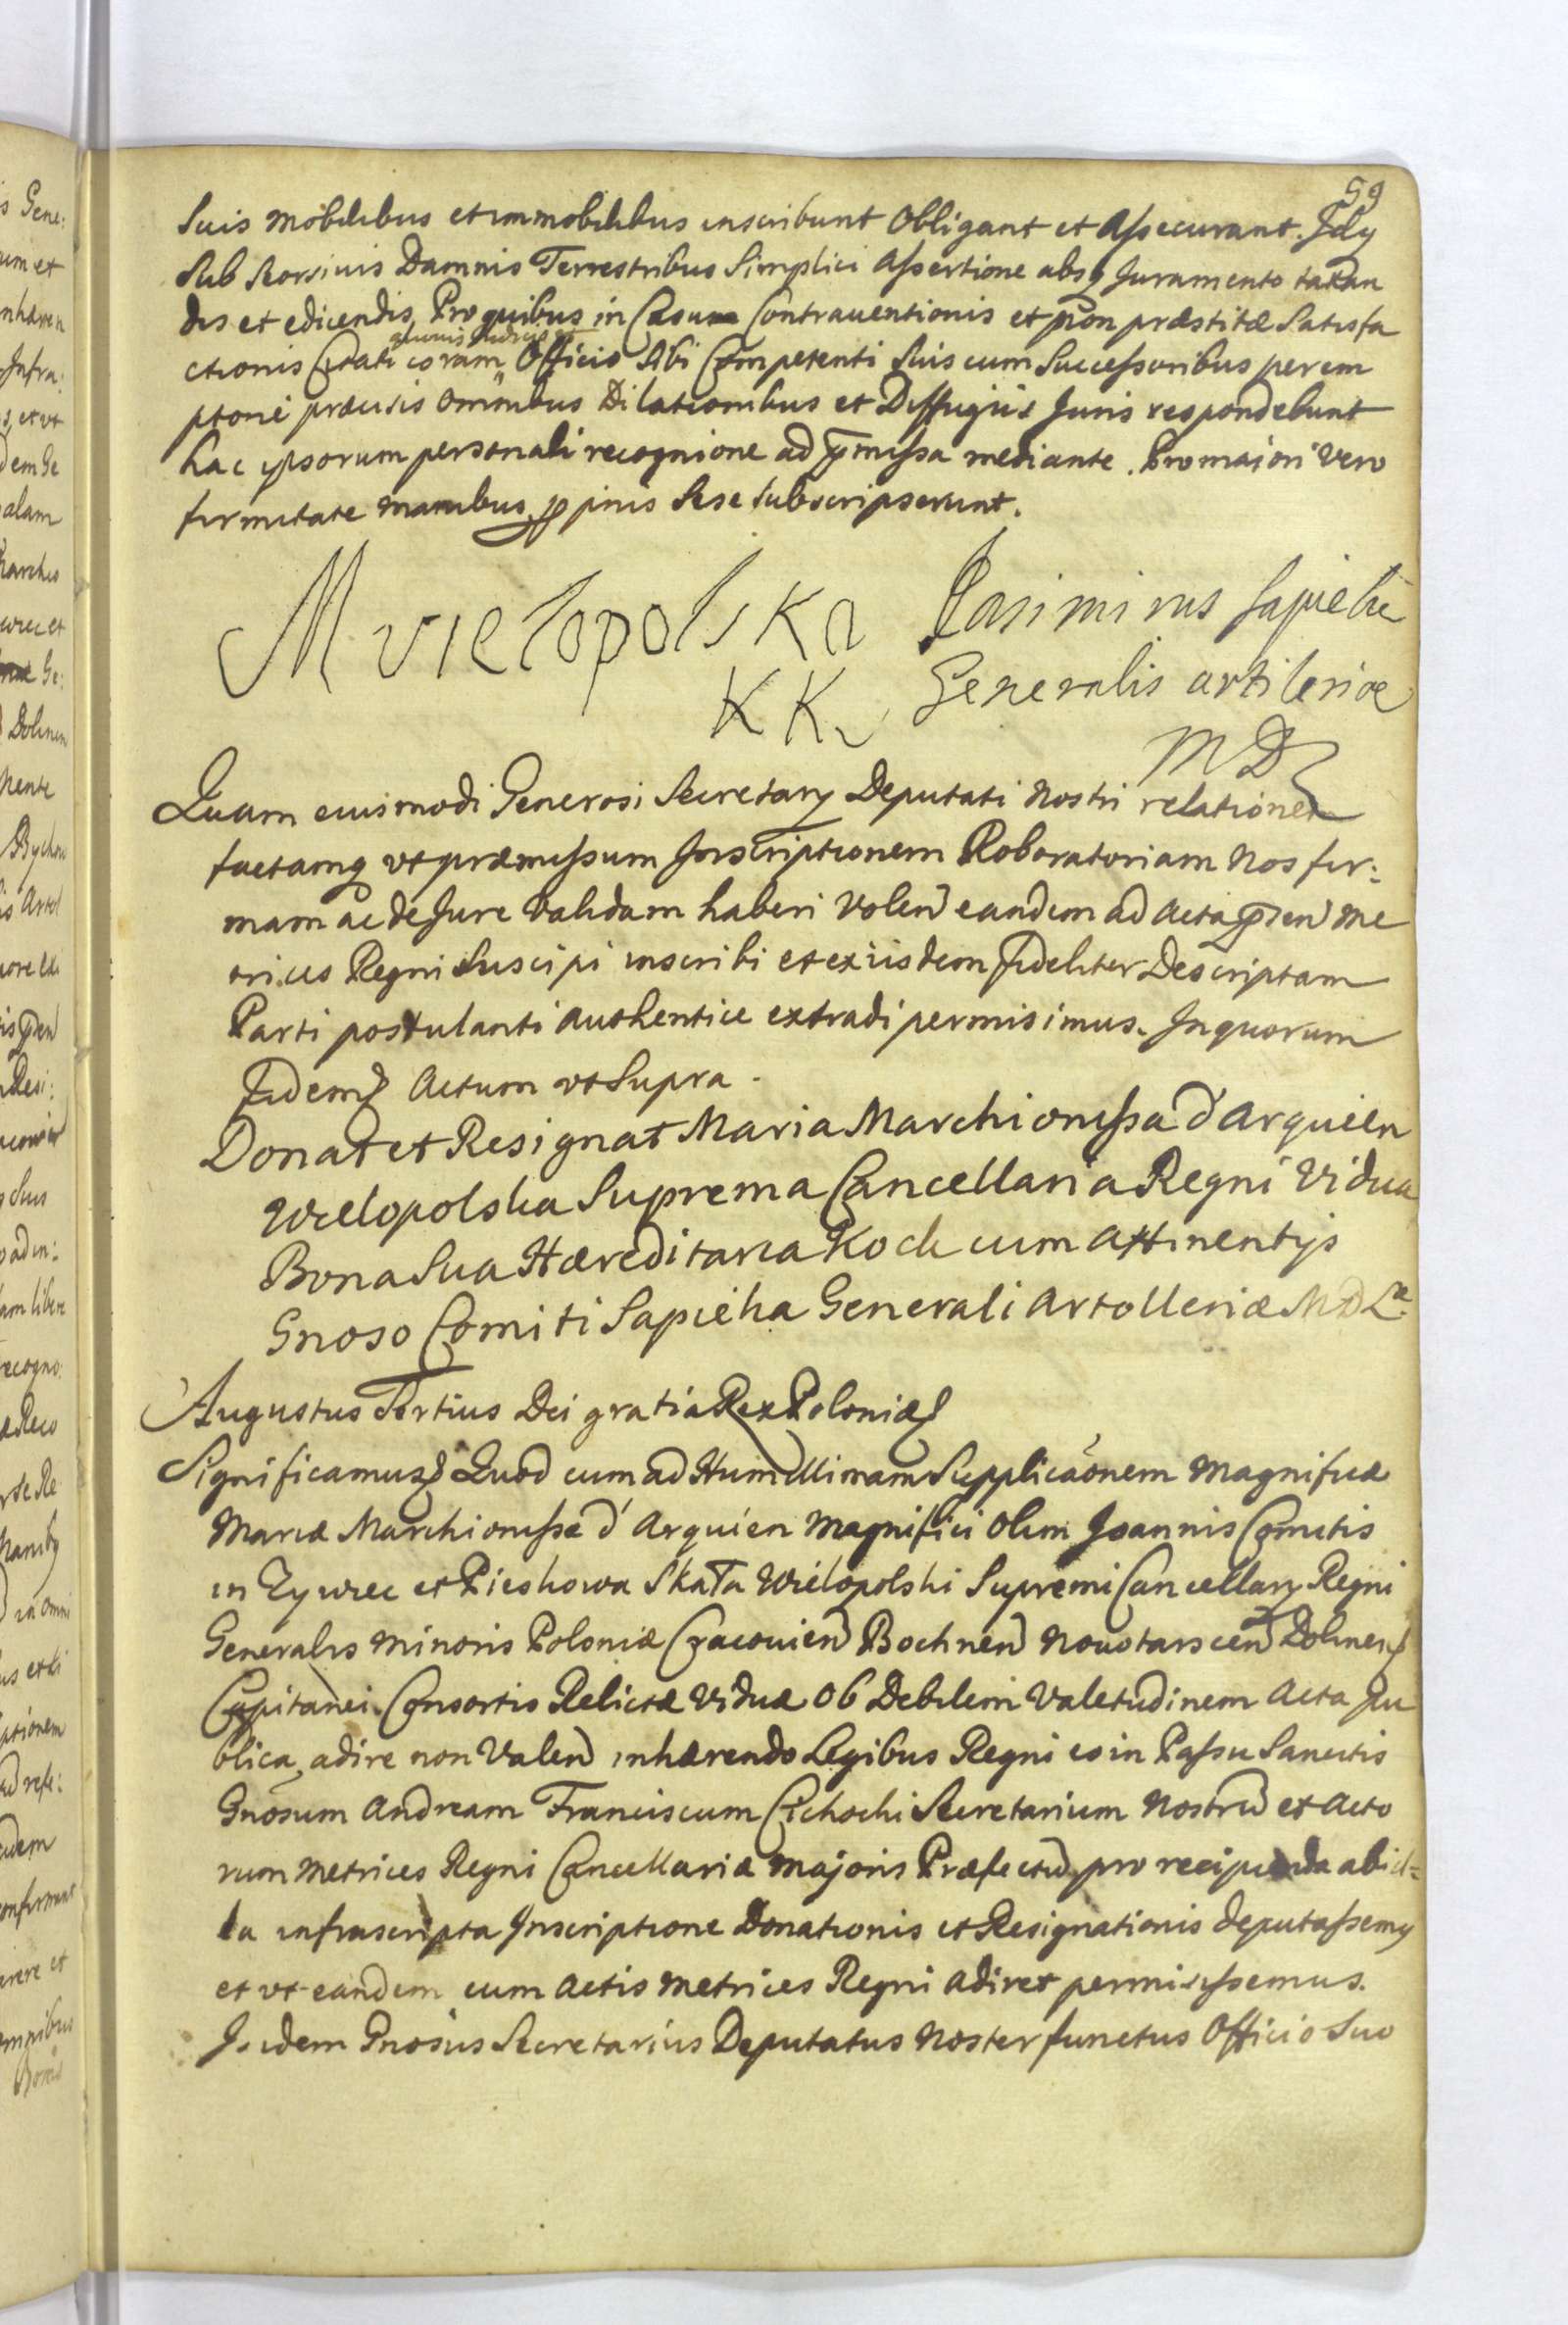 59
Suis mobilibus et immobilibus inscribunt Obligant et Assecurant. Idq
Sub Seorsivis Damnis Terrestribus Simplici Assertione absq Juramento taxan
dis et edicendis, Pro quibus in Casum Contrauentionis et non præstitæ Satisfa
ctionis Citati coram Officio Sibi Competenti Suis cum Successoribus perem
ptorie præcisis omnibus Dilationibus et Diffugiis Juris respondebunt
hac ipsorum personali recognione ad pmissa mediante. Pro maiori vero
firmitate manibus pprijs Sese Subscripserunt.
M vielopolska Casimirus Sapieha
KK Generalis artileriæ
MD
Quam eiusmodi Generosi Secretary Deputati Nostri relationem
factamq vt præmissum Inscriptionem Roboratoriam Nos fir:
mam ac de Jure Validam haberi Volen eandem ad Acta pñen Me
trices Regni Suscipi inscribi et ex iisdem fideliter Descriptam
Parti postulanti authentice extradi permisimus. In quorum
fidem Actum vt Supra.
Donat et Resignat Maria Marchionissa d'Arquien
Wielopolska Suprema Cancellaria Regni Vidua
Bona Sua Hæreditaria Kock cum attinentijs
Gnoso Comiti Sapieha Generali Artolleriæ M D L
Augustus Tertius Dei gratia Rex Poloniæ
Significamus Quod cum ad Humillimam Supplicaonem Magnificæ
Mariæ Marchionissæ d'Arquien Magnifici olim Joannis Comitis
in Zywiec et Pieskowa Skała Wielopolski Supremi Cancellary Regni
Generalis Minoris Poloniæ Cracovien Bochnen Nouotarscen Dolinen
Capitanei Consortis Relictæ Viduæ ob Debilem Valetudinem Acta Pu
blica adire non Valen inhærendo Legibus Regni eo in Passu Sancitis
Gnosum Andream Franciscum Cichocki Secretarium Nostrum et Acto
rum Metrices Regni Cancellariæ Majoris Præfectum pro recipienda ab il=
la infrascripta Inscriptione Donationis et Resignationis deputassemq
et vt eandem cum Actis Metrices Regni adiret permisissemus.
Isidem Gnosus Secretarius Deputatus Noster functus Officio Suo